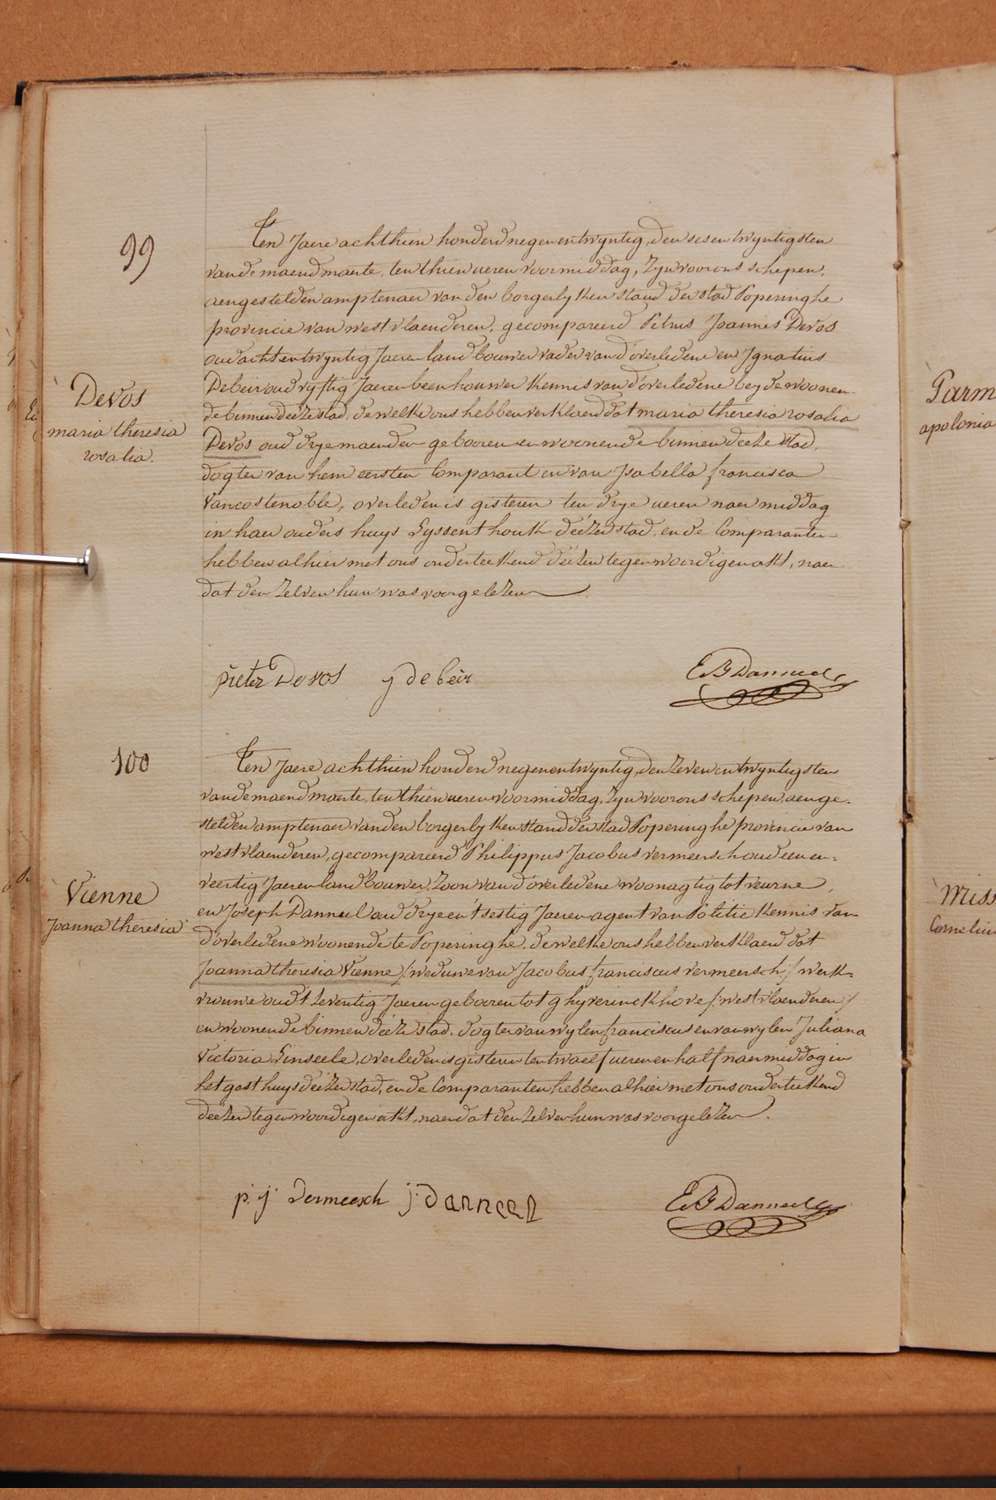 99
Devos
maria theresia
rosalia.
Ten Jaere achthien honderd negenentwyntig, den sesentwyntigsten
van de maend maerte, ten thien ueren voormiddag, Zyn voor ons schepen,
aengestelden amptenaer van den borgerlyken stand der stad Poperinghe
provincie van westvlaenderen, gecompareerd Petrus Joannes Devos
oud achtentwyntig Jaeren landbouwer vader van d'overledene en Ignatius
Debeir oud vyftig Jaeren beenhouwer kennis van d'overledene beyde woonen-
de binnen deeze stad, de welke ons hebben verklaerd dat maria theresia rosalia
Devos oud drye maenden gebooren en woonende binnen deeze stad,
dogter van hem eersten Comparant en van Isabella francisca
Vancostenoble, overleden is gisteren ten drye ueren naermiddag
in haer ouders huys Eyssenthouk deézer stad, en de Comparanten
hebben alhier met ons onderteekend deézen tegenwoordigen akt, naer
dat den zelven hun was voorgelezen.
pieter Devos j debeir EBDanneel
100
Vienne
Joanna theresia
Ten Jaere achthien honderd negenentwyntig, den zevenentwyntigsten
van de maend maerte, ten thien ueren voormiddag, Zyn voor ons schepen, aenge-
stelden amptenaer van den borgerlyken stand der stad Poperinghe provincie van
westvlaenderen, gecompareerd Philippus Jacobus vermeersch oud eenen-
veertig Jaeren landbouwer, Zoon van d'overledene woonagtig tot veurne,
en Joseph Danneel oud drye en 't sestig Jaeren agent van Politie kennis van
d'overledene woonende te Poperinghe, de welke ons hebben verklaerd dat
Joanna theresia Vienne /weduwe van Jacobus franciscus vermeersch/ werk-
vrouwe oud t'zeventig Jaeren gebooren tot ghyverinckhove /westvlaenderen/
en woonende binnen deéze stad, dogter van wylen franciscus en van wylen Juliana
Victoria Einseele, overleden is gisteren ten twaelf ueren en half naermiddag in
het gasthuys deézer stad, en de Comparanten hebben alhier met ons onderteekend
deézen tegenwoordigen akt, naer dat den zelven hun was voorgelezen.
p: j: vermeersch j: danneel EBDanneel
Parm
apolonia
Miss
Cornelius